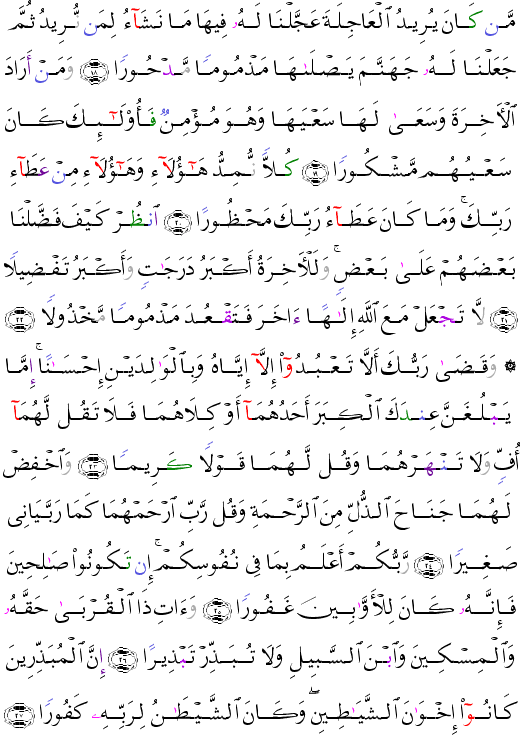 مَّن كَانَ يُرِيدُ ٱلْعَاجِلَةَ عَجَّلْنَا لَهُۥ فِيهَا مَا نَشَآءُ لِمَن نُّرِيدُ ثُمَّ
جَعَلْنَا لَهُۥ جَهَنَّمَ يَصْلَىٰهَا مَذْمُومًا مَّدْحُورًا ﴿١٨﴾ وَمَنْ أَرَادَ
ٱلْأَخِرَةَ وَسَعَىٰ لَهَا سَعْيَهَا وَهُوَ مُؤْمِنٌ فَأُو۟لَٰٓئِكَ كَانَ
سَعْيُهُم مَّشْكُورًا ﴿١٩﴾ كُلًّا نُّمِدُّ هَٰٓؤُلَآءِ وَهَٰٓؤُلَآءِ مِنْ عَطَآءِ
رَبِّكَ ۚ وَمَا كَانَ عَطَآءُ رَبِّكَ مَحْظُورًا ﴿٢٠﴾ ٱنظُرْ كَيْفَ فَضَّلْنَا
بَعْضَهُمْ عَلَىٰ بَعْضٍ ۚ وَلَلْأَخِرَةُ أَكْبَرُ دَرَجَٰتٍ وَأَكْبَرُ تَفْضِيلًا
﴿٢١﴾ لَّا تَجْعَلْ مَعَ ٱللَّهِ إِلَٰهًا ءَاخَرَ فَتَقْعُدَ مَذْمُومًا مَّخْذُولًا ﴿٢٢﴾
۞ وَقَضَىٰ رَبُّكَ أَلَّا تَعْبُدُوٓا۟ إِلَّآ إِيَّاهُ وَبِٱلْوَٰلِدَيْنِ إِحْسَٰنًا ۚ إِمَّا
يَبْلُغَنَّ عِندَكَ ٱلْكِبَرَ أَحَدُهُمَآ أَوْ كِلَاهُمَا فَلَا تَقُل لَّهُمَآ
أُفٍّ وَلَا تَنْهَرْهُمَا وَقُل لَّهُمَا قَوْلًا كَرِيمًا ﴿٢٣﴾ وَٱخْفِضْ
لَهُمَا جَنَاحَ ٱلذُّلِّ مِنَ ٱلرَّحْمَةِ وَقُل رَّبِّ ٱرْحَمْهُمَا كَمَا رَبَّيَانِى
صَغِيرًا ﴿٢٤﴾ رَّبُّكُمْ أَعْلَمُ بِمَا فِى نُفُوسِكُمْ ۚ إِن تَكُونُوا۟ صَٰلِحِينَ
فَإِنَّهُۥ كَانَ لِلْأَوَّٰبِينَ غَفُورًا ﴿٢٥﴾ وَءَاتِ ذَا ٱلْقُرْبَىٰ حَقَّهُۥ
وَٱلْمِسْكِينَ وَٱبْنَ ٱلسَّبِيلِ وَلَا تُبَذِّرْ تَبْذِيرًا ﴿٢٦﴾ إِنَّ ٱلْمُبَذِّرِينَ
كَانُوٓا۟ إِخْوَٰنَ ٱلشَّيَٰطِينِ ۖ وَكَانَ ٱلشَّيْطَٰنُ لِرَبِّهِۦ كَفُورًا ﴿٢٧﴾